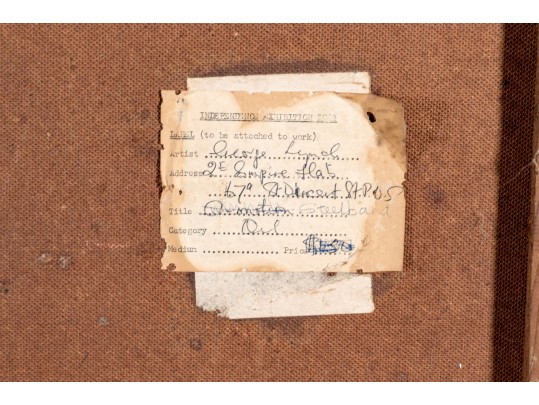 INDEPENDENCE EXHIBITION
LABEL (to be attached to work)
Artist George Lynch
Address 2E Empire Flat
67A St Vincent St P.O.S
Title Steelband
Category Oil
Medium Price